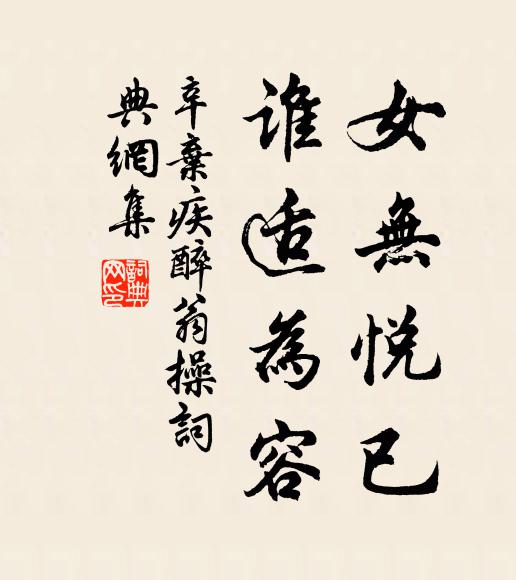 女無悦已
誰适為容
辛棄疾醉翁操詞
典網集
詞典网印